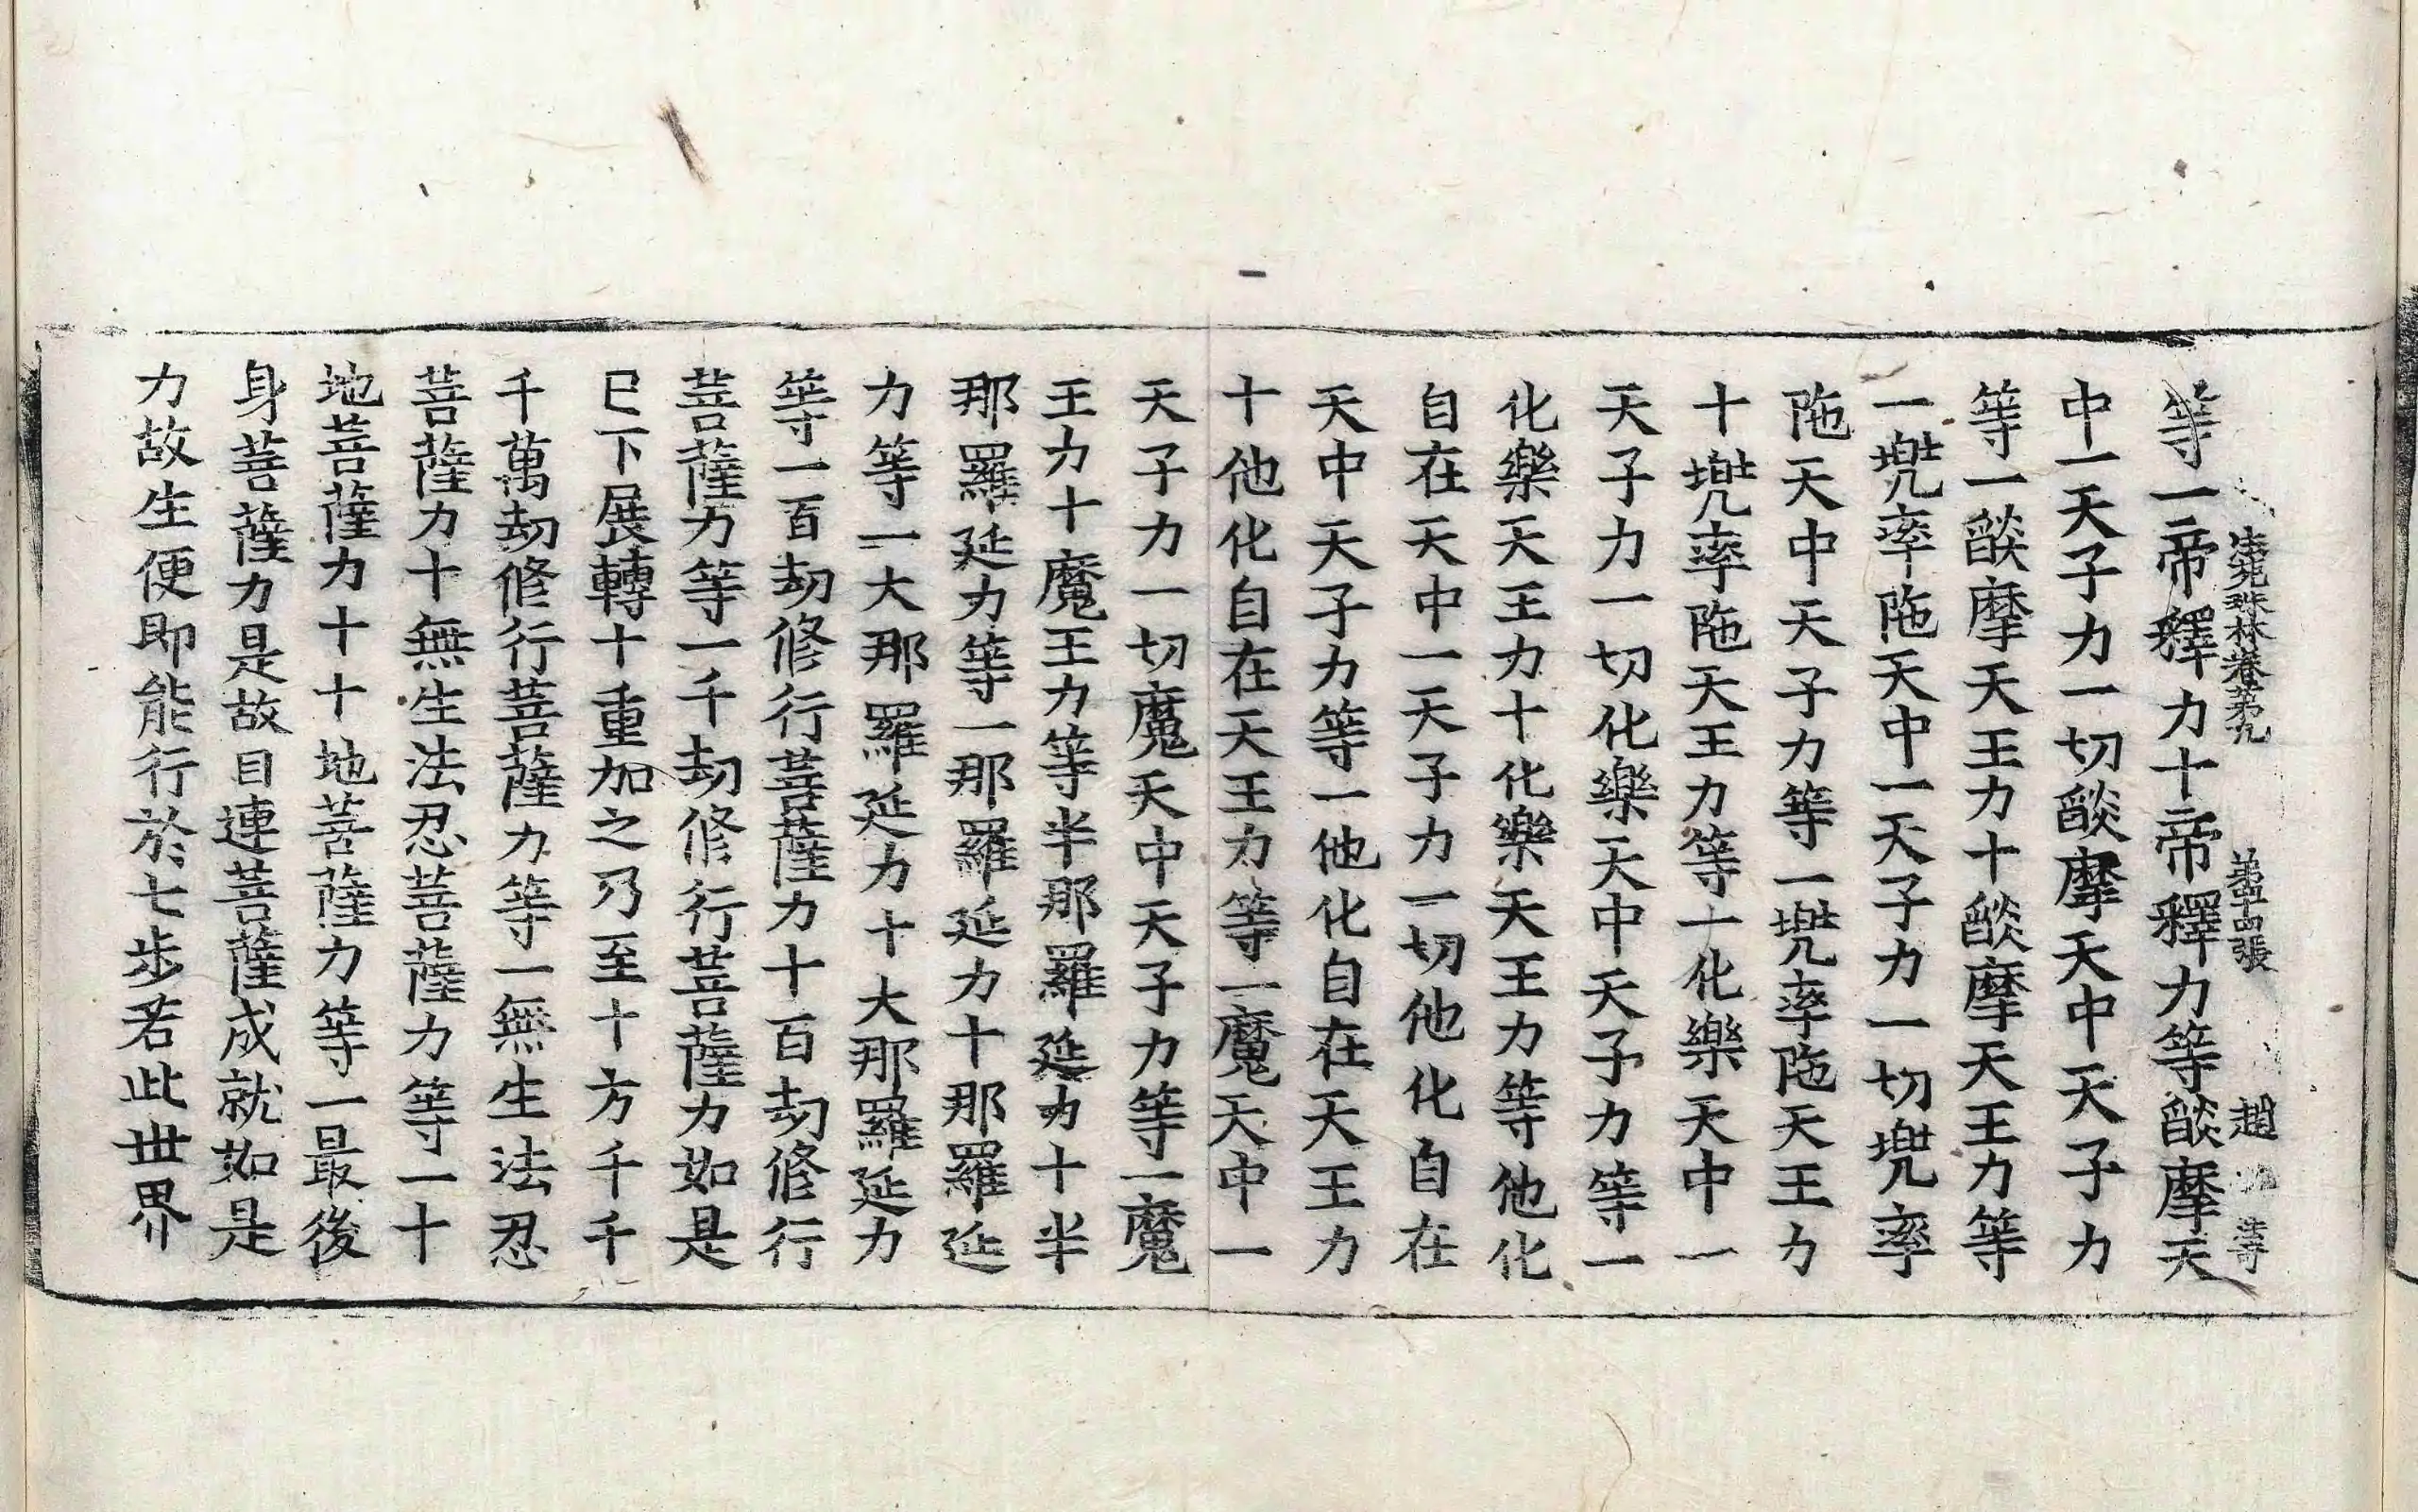 法苑珠林卷第九 第十四張 趙
等一帝釋力十帝釋力等𦦨摩天
中一天子力一切𦦨摩天中天子力
等一𦦨摩天王力十𦦨摩天王力等
一兠率陁天中一天子力一切兠率
陁天中天子力等一兠率陁天王力
十兠率陁天王力等一化樂天中一
天子力一切化樂天中天子力等一
化樂天王力十化樂天王力等他化
自在天中一天子力一切他化自在
天中天子力等一他化自在天王力
十他化自在天王力等一魔天中一
天子力一切魔天中天子力等一魔
王力十魔王力等半那羅延力十半
那羅延力等一那羅延力十那羅延
力等一大那羅延力十大那羅延力
等一百劫修行菩薩力十百劫修行
菩薩力等一千劫修行菩薩力如是
已下展轉十重加之乃至十方千千
千萬劫修行菩薩力等一無生法忍
菩薩力十無生法忍菩薩力等一十
地菩薩力十十地菩薩力等一最後
身菩薩力是故目連菩薩成就如是
力故生便即能行於七步若此世界